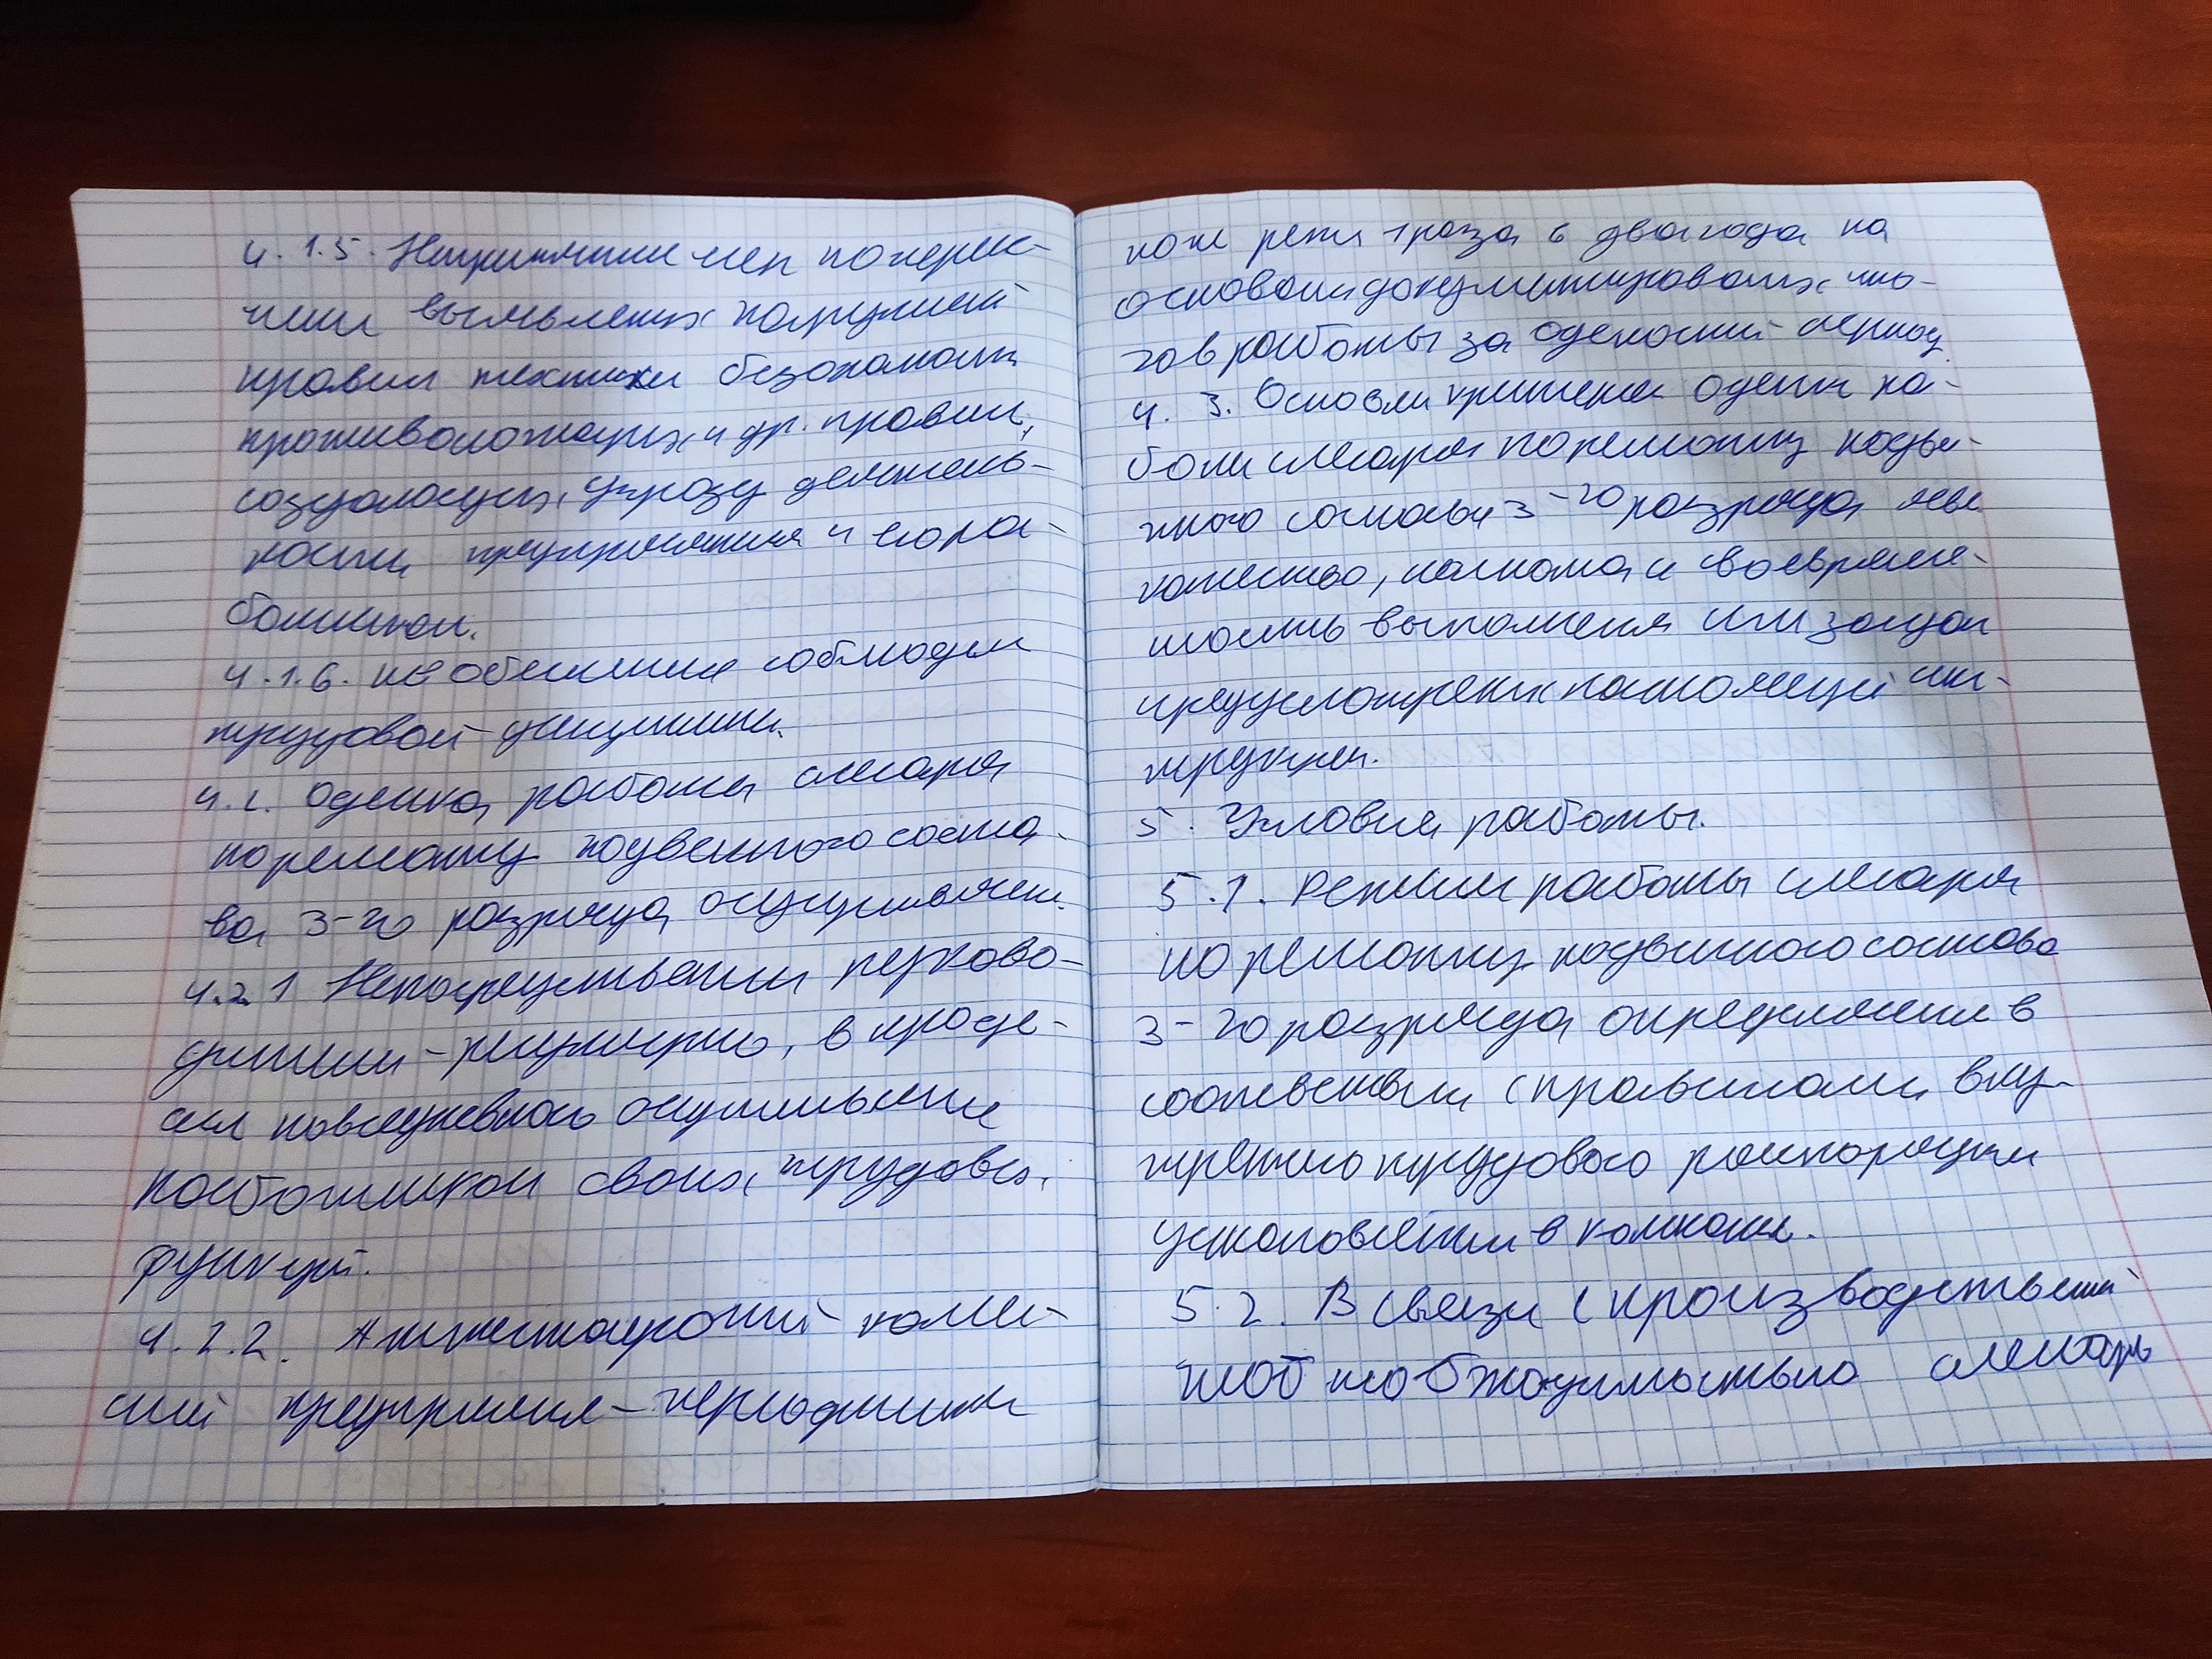 4.1.5. Непринятие мер по пресе-
чению выявленных нарушений
правил техники безопасности
противопожарных и др. правил,
создающих угрозу деятель-
ности предприятия и его ра-
ботникам.
4.1.6. не обеспечение соблюдения
трудовой дисциплины.
4.2. Оценка работы слесаря
по ремонту подвижного соста-
ва 3-го разряда осуществляется
4.2.1 Непосредственным руково-
дителем - регулярно, в проце-
ссе повседневного осуществления
работником своих трудовых
функций.
4.2.2. Аттестационной комис-
сией предприятия - периодически
но не реже 1 раза в два года на
основании документированных ито-
гов работы за оценочный период
4.3. Основным критерием оценки ра-
боты слесаря по ремонту подви-
жного состава 3-го разряда явл.
качество, полнота и своевремен-
ность выполнения им задач
предусмотренных настоящей инс-
трукцией.
5. Условия работы.
5.1. Режим работы слесаря
по ремонту подвижного состава
3-го разряда определяется в
соответствии с правилами вну-
треннего трудового распорядка
установленными в компании.
5.2. В связи с производственной
необходимостью слесарь